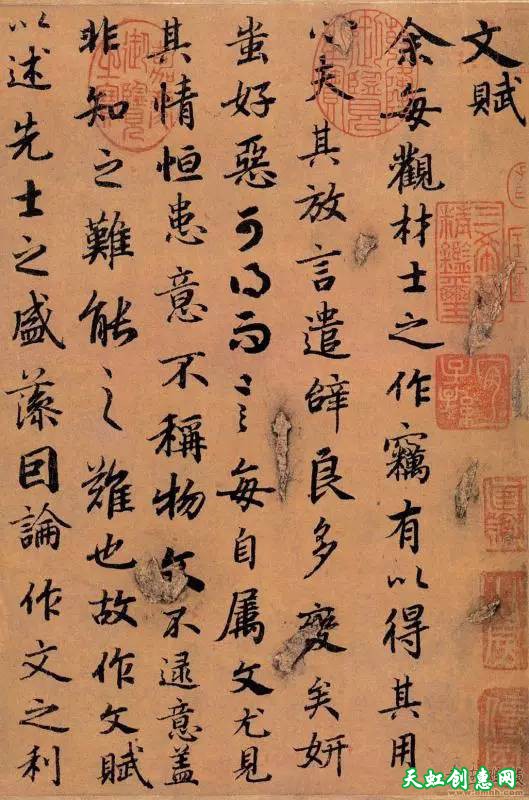 文賦
余每觀材士之作竊有以得其用
心夫其放言遣辭良多變矣妍
蚩好惡可得而言每自屬文尤見
其情恒患意不稱物文不逮意盖
非知之難能之難也故作文賦
以述先士之盛藻因論作文之利
三希堂精鑑璽
宜子孫
天虹创意网